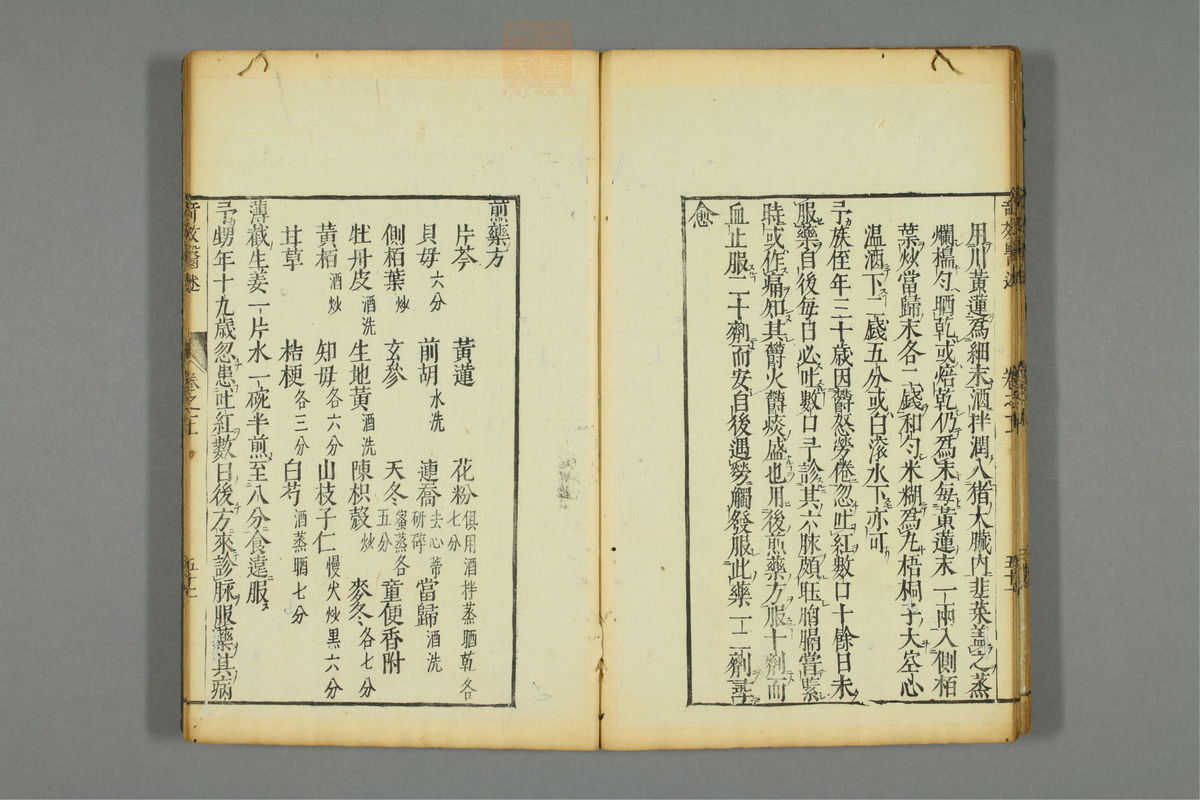 用川黃蓮為細末酒拌潤入猪大臟內韭菜盖之蒸
爛榅勻晒乾或焙乾仍為末每黃蓮末一兩入側栢
葉炒當歸末各二錢和勻米糊為丸梧桐子大空心
溫酒下二錢五分或白滚水下亦可
予族侄年三十歲因欝怒勞倦忽吐紅數口十餘日未
服藥自後每日必吐數口予診其六脉頗旺胸膈當緊
時或作痛知其欝火欝痰盛也用後煎藥方服十劑而
血止服二十劑而安自後遇勞觸發服此藥一二劑
愈
煎藥方
片芩 黃蓮 花粉俱用酒拌蒸晒乾各七分
貝母六分 前胡水洗 連喬去心蒂研碎 當歸酒洗
側栢葉炒 玄參 天冬蜜蒸各五分 童便香附
牡丹皮酒洗 生地黃酒洗 陳枳殼炒 麥冬各七分
黃栢酒炒 知母各六分 山枝子仁慢火炒黑六分
甘草 桔梗各三分 白芍酒蒸晒七分
薄截生姜一片水一碗半煎至八分食遠服
予甥年十九歲忽患吐紅數日後方來診脉服藥其病
奇效醫述
卷之二